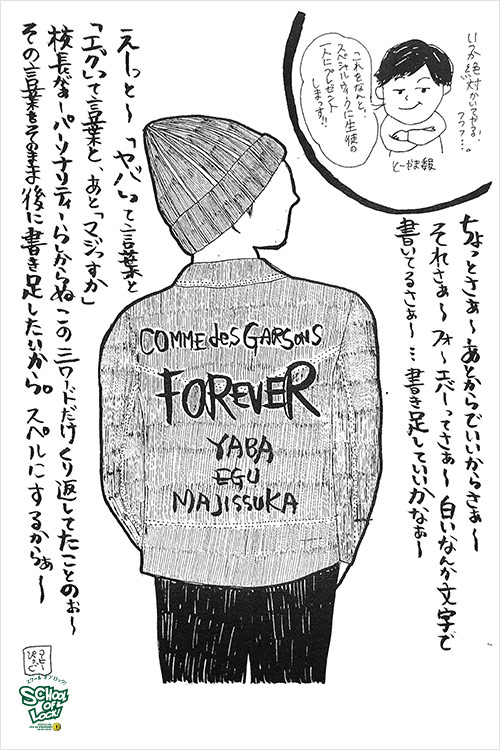 いつか絶対かいてやる!
フフフ…。
これをなんと、
スペシャルウィークに生徒の
一人にプレゼント
しまっす!!
とーやま報
ちょっとさぁ〜あとからでいいからさぁ〜
それさぁ〜フォーエバーってさぁ〜白いなんか文字で
書いてるさぁ〜…書き足していいかなぁ〜
えーっと〜「ヤバい」って言葉と
「エグい」て言葉と、あと「マジっすか」
校長がなぁーパーソナリティーらしからぬこの三ワードだけくり返してたことのぉ〜
その言葉をそのまま後に書き足したいから。スペルにするからぁ〜
COMME des GARSONS
FOREVER
YABA
EGU
MAJISSUKA
スクール オブ ロック!
SCHOOL
OF
LOCK!